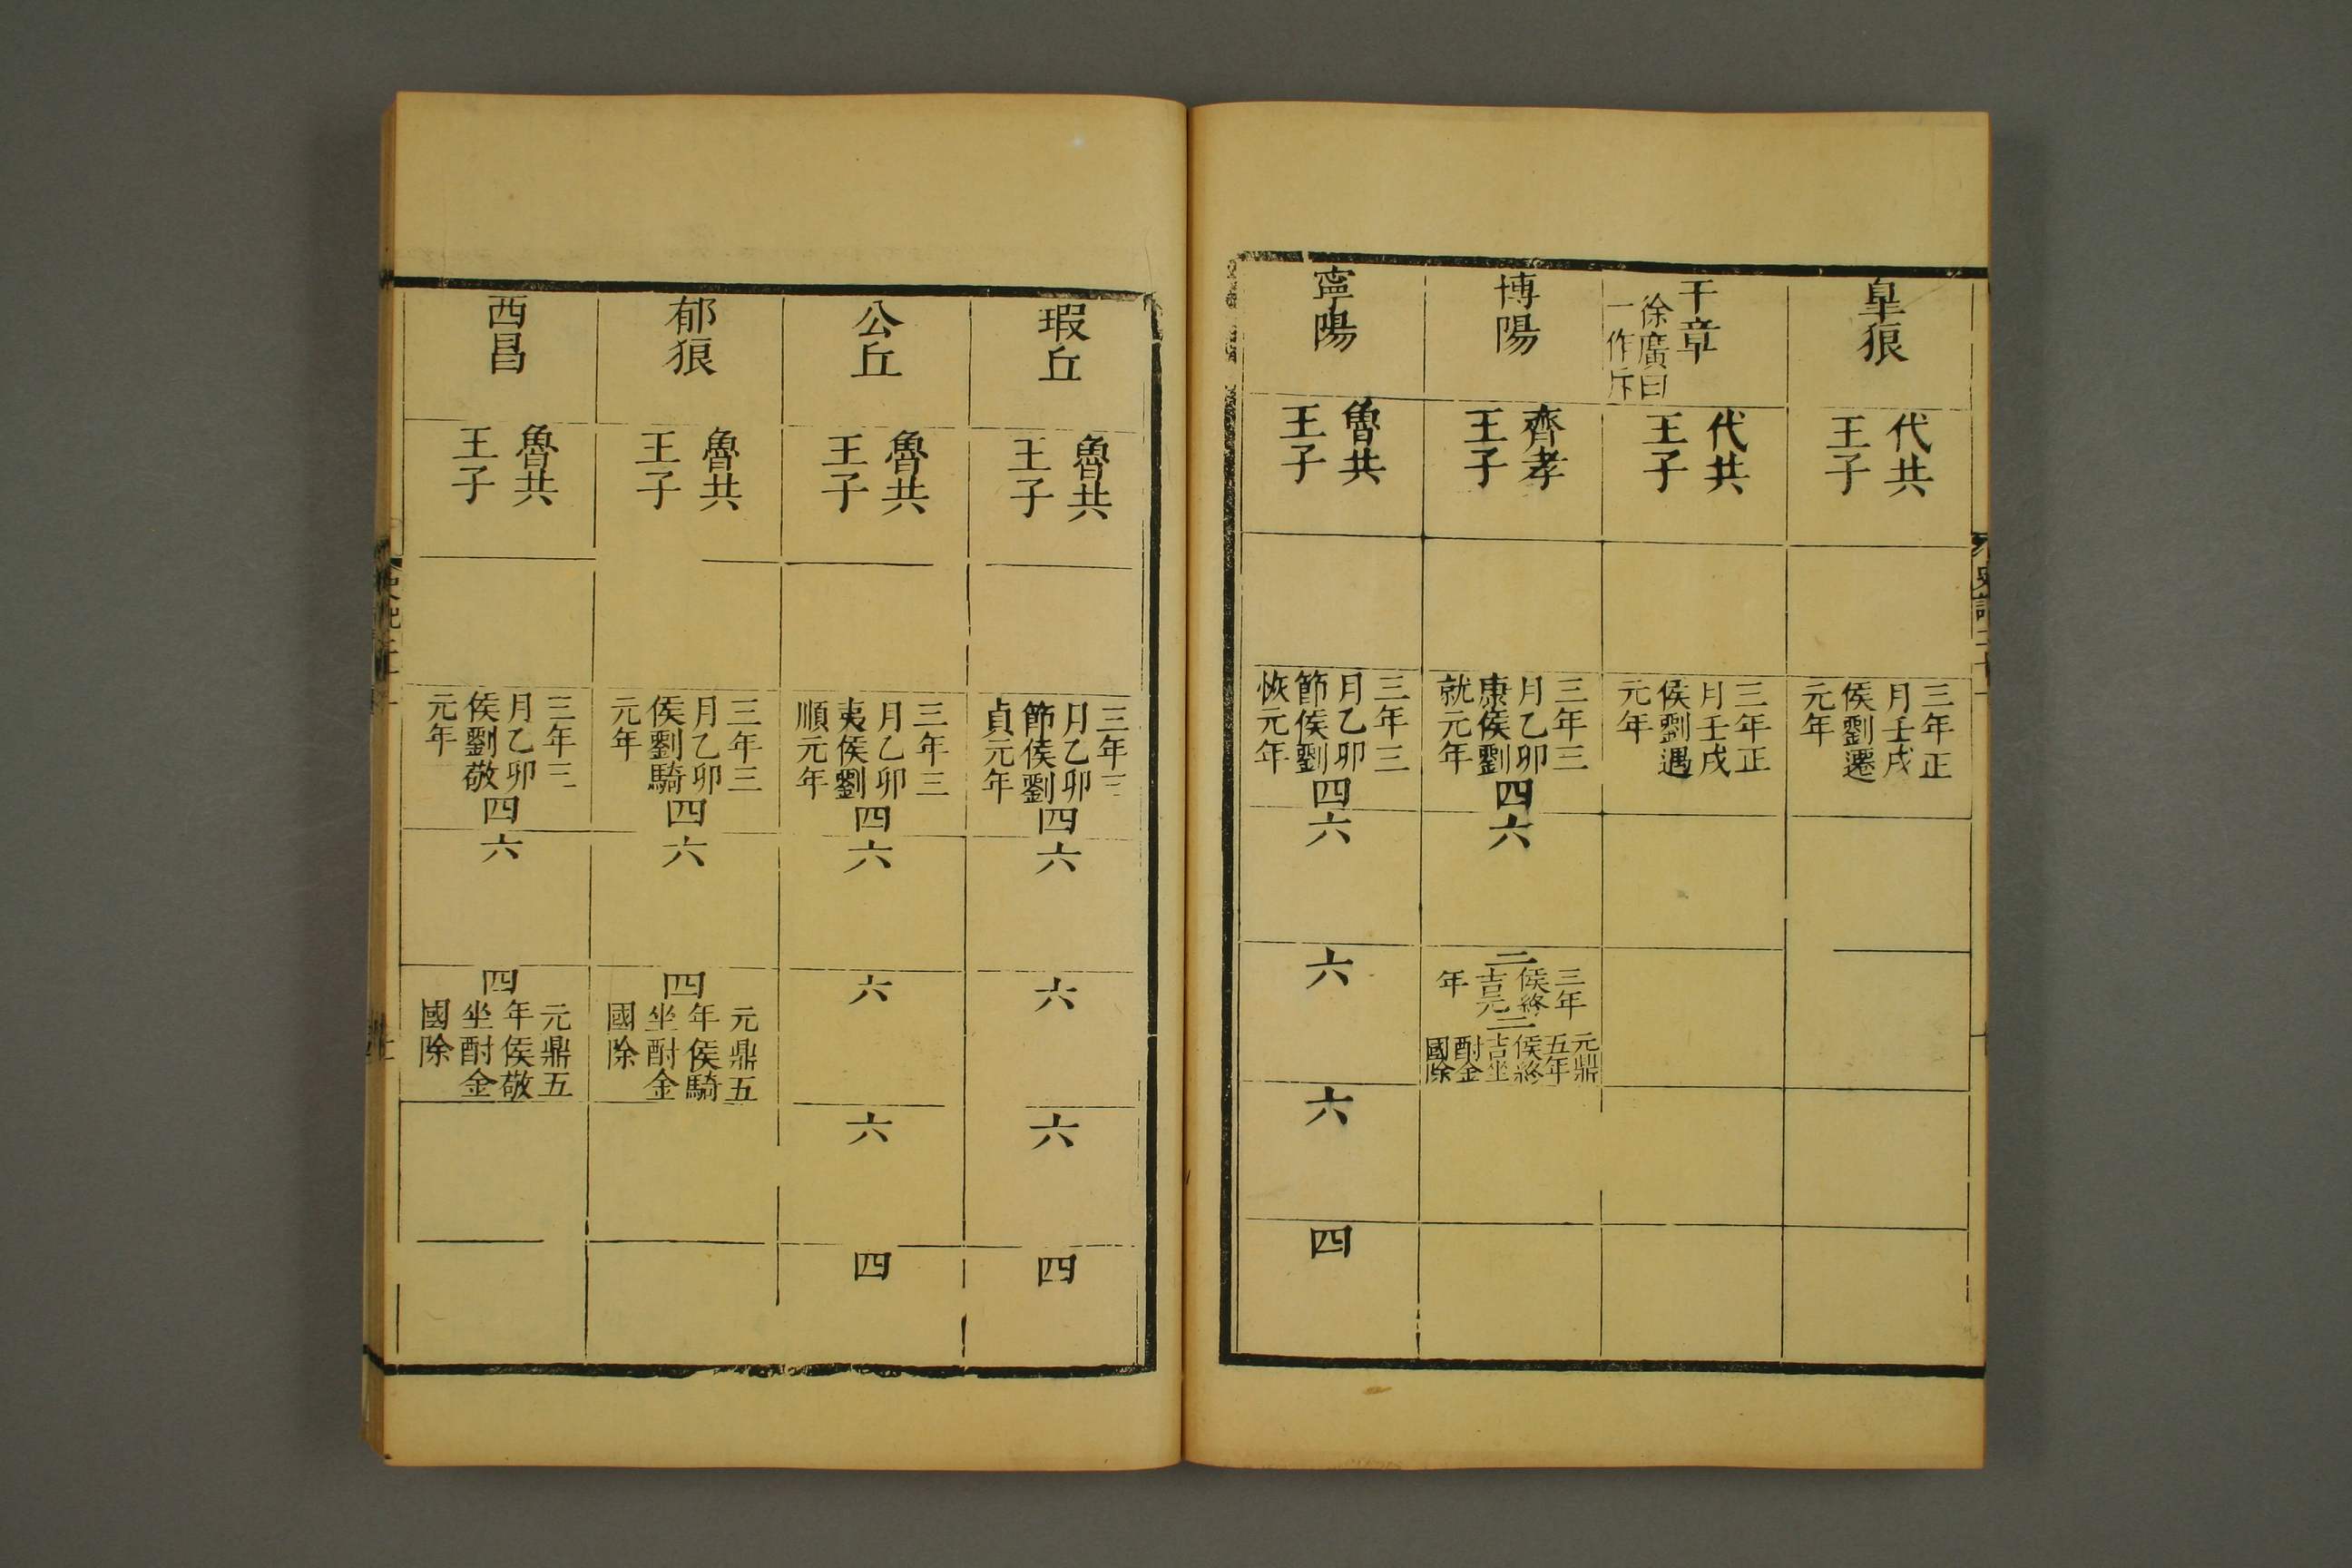 皐狼
代共
王子
三年正
月壬戌
侯劉遷
元年
千章
徐廣曰
一作斥
代共
王子
三年正
月壬戌
侯劉遇
元年
博陽
齊孝
王子
三年三
月乙卯
康侯劉
就元年
四
六
二
三年
侯終
吉元
年
二
元鼎
五年
侯終
吉坐
酎金
國除
寧陽
魯共
王子
三年三
月乙卯
節侯劉
恢元年
四
六
六
六
四
瑕丘
魯共
王子
三年三
月乙卯
節侯劉
貞元年
四
六
六
六
四
公丘
魯共
王子
三年三
月乙卯
夷侯劉
順元年
四
六
六
六
四
郁狼
魯共
王子
三年三
月乙卯
侯劉騎
元年
四
六
四
元鼎五
年侯騎
坐酎金
國除
西昌
魯共
王子
三年三
月乙卯
侯劉敬
元年
四
六
四
元鼎五
年侯敬
坐酎金
國除